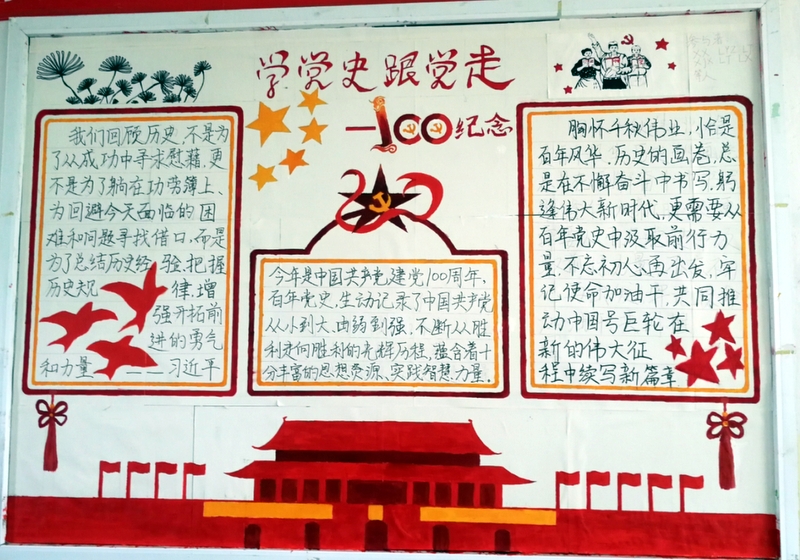 学党史跟党走
100纪念
我们回顾历史，不是为
了从成功中寻求慰藉，更
不是为了躺在功劳簿上、
为回避今天面临的困
难和问题寻找借口，而是
为了总结历史经验、把握
历史规律，增
强开拓前
进的勇气
和力量——习近平
今年是中国共产党建党100周年，
百年党史，生动记录了中国共产党
从小到大、由弱到强、不断从胜
利走向胜利的光辉历程，蕴含着十
分丰富的思想资源、实践智慧力量。
胸怀千秋伟业，恰是
百年风华。历史的画卷，总
是在不懈奋斗中书写，躬
逢伟大新时代，更需要从
百年党史中汲取前行力
量，不忘初心再出发，牢
记使命加油干，共同推
动中国号巨轮在
新的伟大征
程中续写新篇章